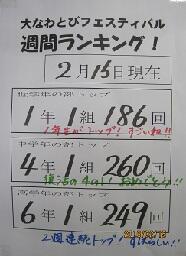 大なわとびフェスティバル
週間ランキング！
2月15日現在
低学年の部トップ
1年1組186回
1年生がトップ！すごいね!!
中学年の部トップ
4年1組260回
復活の4の1！おめでとう!!
高学年の部トップ
6年1組249回
2週連続トップ！すばらしい!!